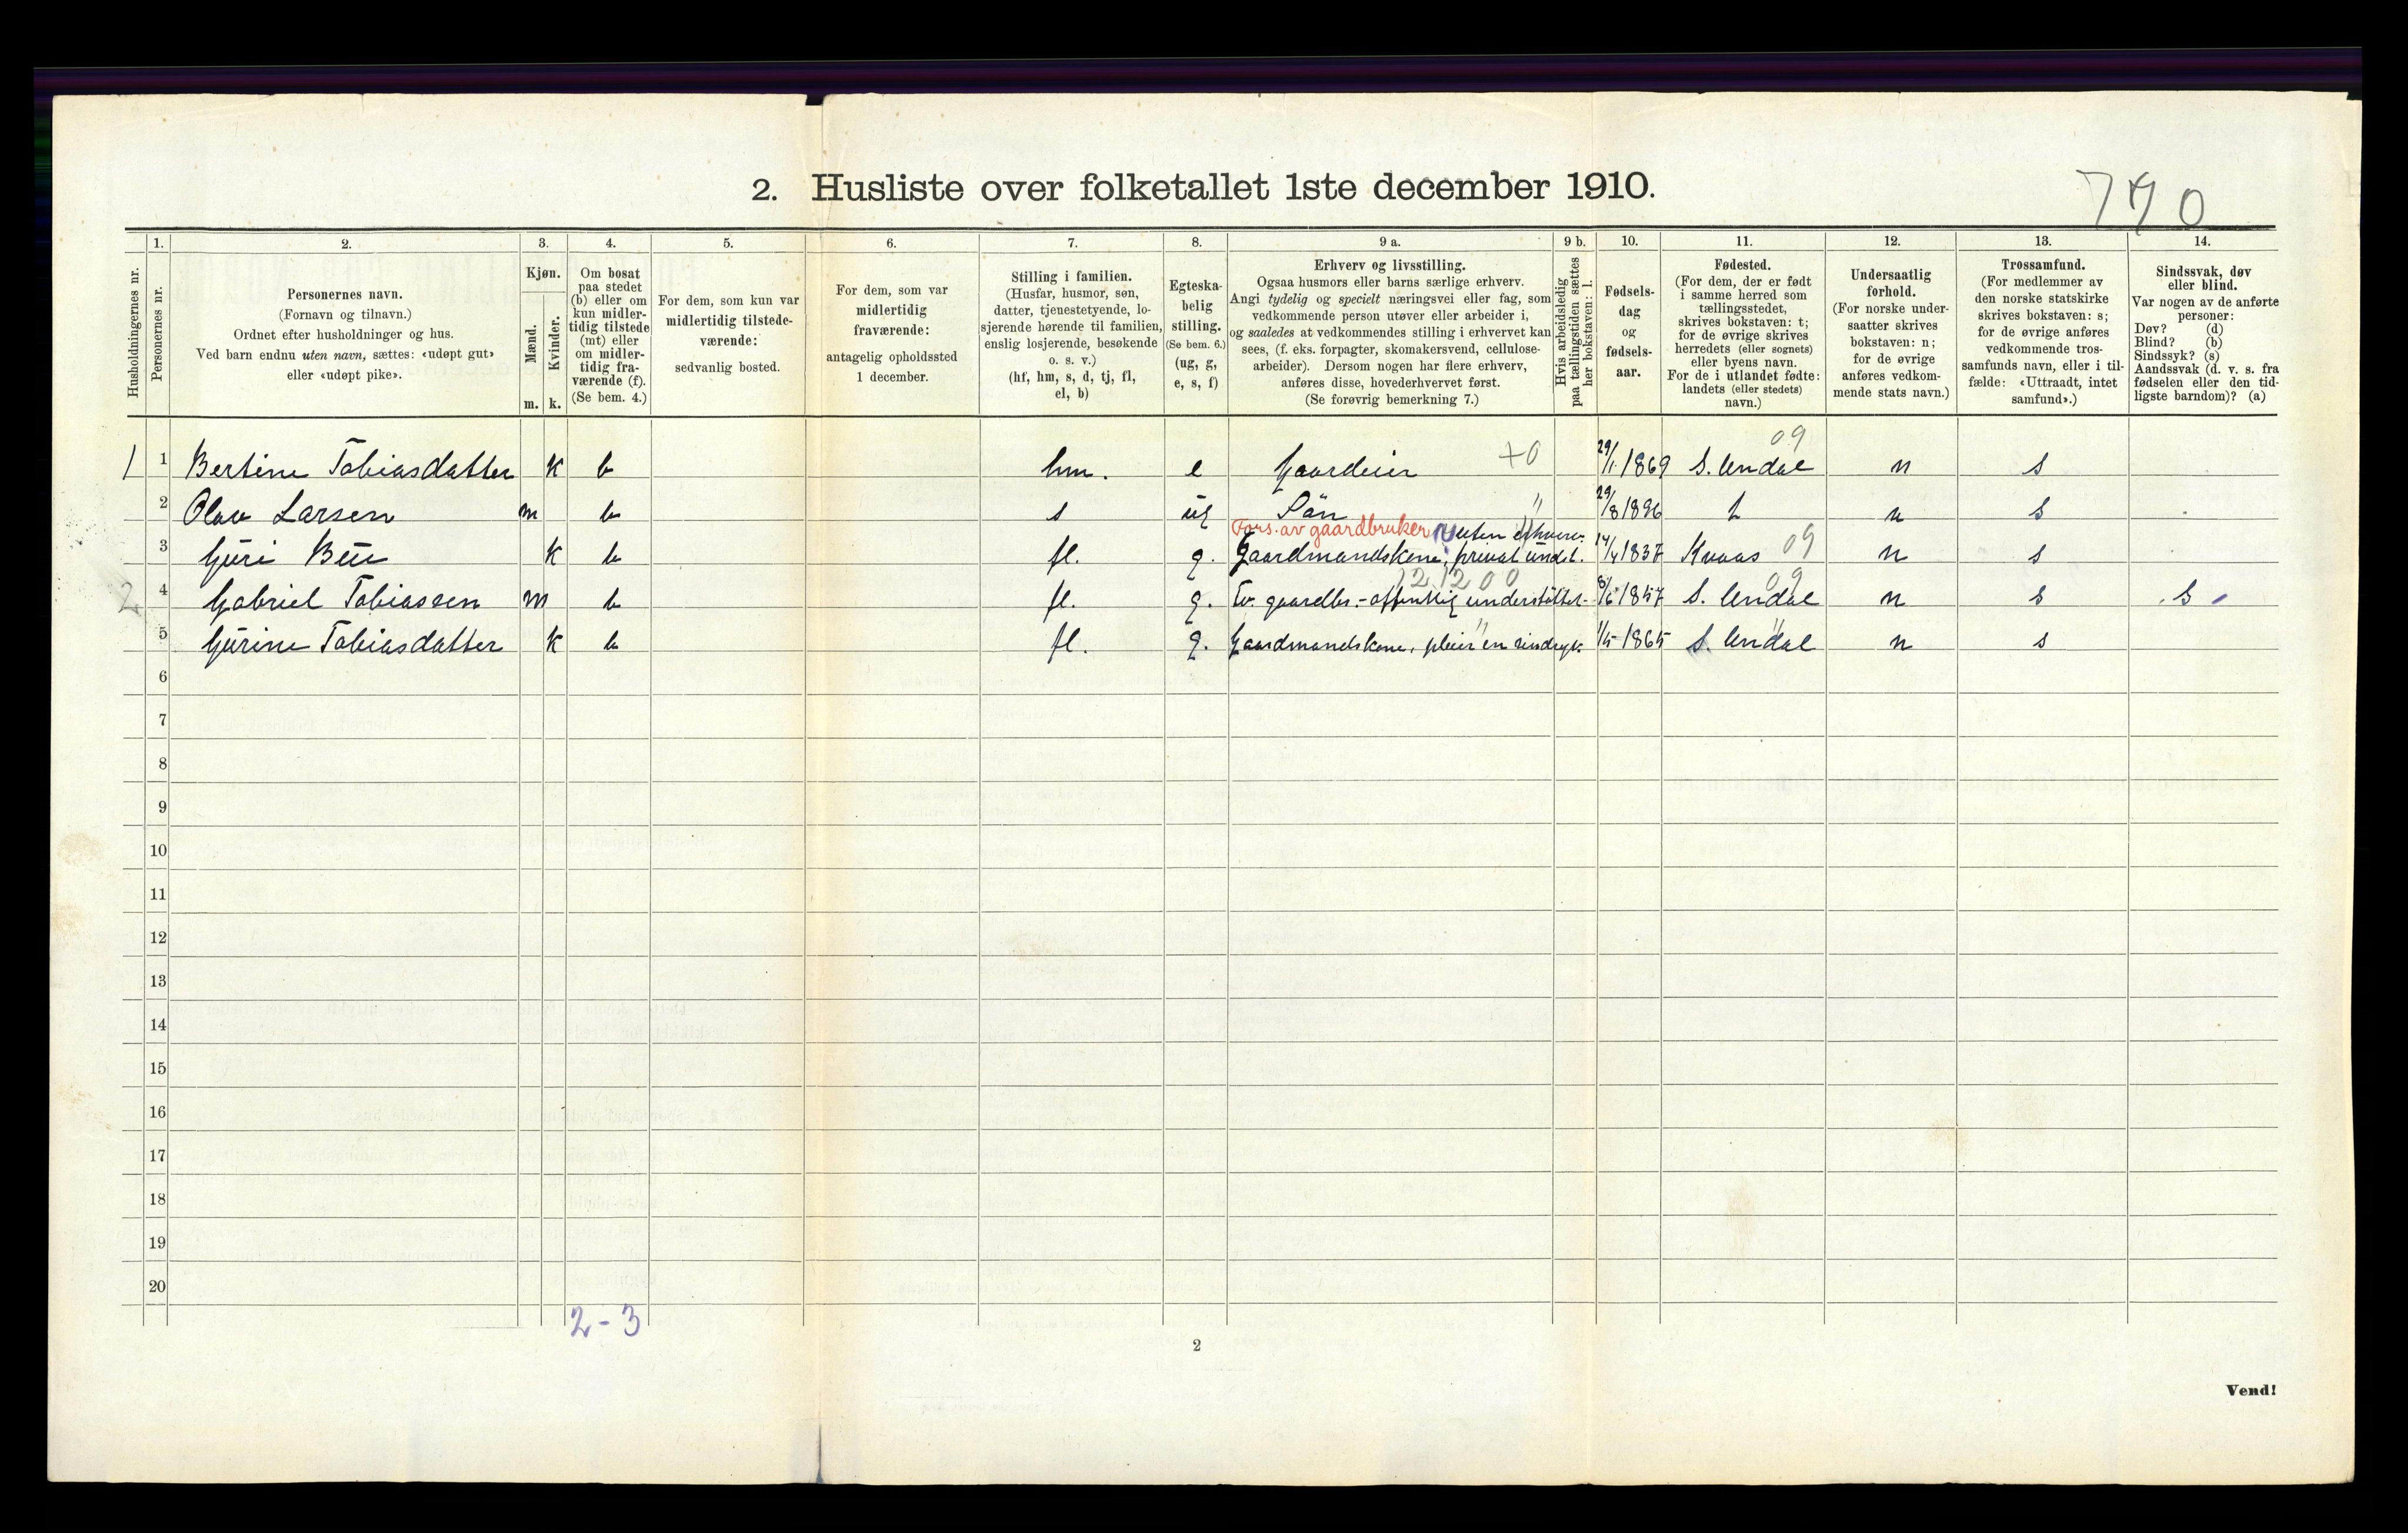 770
2. Husliste over folketallet 1ste december 1910.
Husholdningernes nr.
1.
Personernes nr.
2.
Personernes navn.
(Fornavn og tilnavn.)
Ordnet efter husholdninger og hus.
Ved barn endnu uten navn, sættes: «udøpt gut»
eller «udøpt pike».
3.
Kjøn.
Mænd.
Kvinder.
m. k.
4.
Om bosat
paa stedet
(b) eller om
kun midler-
tidig tilstede
(mt) eller
om midler-
tidig fra-
værende (f).
(Se bem. 4.)
5.
For dem, som kun var
midlertidig tilstede-
værende:
sedvanlig bosted.
6.
For dem, som var
midlertidig
fraværende:
antagelig opholdssted
1 december.
7.
Stilling i familien.
(Husfar, husmor, søn,
datter, tjenestetyende, lo-
sjerende hørende til familien,
enslig losjerende, besøkende
o. s. v.)
(hf, hm, s, d, tj, fl,
el, b)
8.
Egteska-
belig
stilling.
(Se bem. 6.)
(ug, g,
e, s, f)
9 a.
Erhverv og livsstilling.
Ogsaa husmors eller barns særlige erhverv.
Angi tydelig og specielt næringsvei eller fag, som
vedkommende person utøver eller arbeider i,
og saaledes at vedkommendes stilling i erhvervet kan
sees, (f. eks. forpagter, skomakersvend, cellulose-
arbeider). Dersom nogen har flere erhverv,
anføres disse, hovederhvervet først.
(Se forøvrig bemerkning 7.)
9 b.
Hvis arbeidsledig
paa tællingstiden sættes
her bokstaven: l.
10.
Fødsels-
dag
og
fødsels-
aar.
11.
Fødested.
(For dem, der er født
i samme herred som
tællingsstedet,
skrives bokstaven: t;
for de øvrige skrives
herredets (eller sognets)
eller byens navn.
For de i utlandet fødte:
landets (eller stedets)
navn.)
12.
Undersaatlig
forhold.
(For norske under-
saatter skrives
bokstaven: n;
for de øvrige
anføres vedkom-
mende stats navn.)
13.
Trossamfund.
(For medlemmer av
den norske statskirke
skrives bokstaven: s;
for de øvrige anføres
vedkommende tros-
samfunds navn, eller i til-
fælde: «Uttraadt, intet
samfund».)
14.
Sindssvak, døv
eller blind.
Var nogen av de anførte
personer:
Døv? (d)
Blind? (b)
Sindssyk? (s)
Aandssvak (d. v. s. fra
fødselen eller den tid-
ligste barndom)? (a)
09
1 1 Bertine Tobiasdatter K b hm. e Gaardeier +0 29/1 1869 S. Undal n s
2 Olav Larsen m b s ug Sön " 29/8 1896 t n s
Fors. av gaardbruker uten erhverv.
3 Guri Bue K b fl. g. Gaardmandskone, privat undst. 14/4 1837 Kvaas 09 n s
121200 09
2 4 Gabriel Tobiassen m b fl. g. Ev. gaardbr. - offentlig understöttet- 8/6 1857 S. Undal n s S
5 Gurine Tobiasdatter K b fl. g. Gaardmandskone, pleier en sindsyk. 1/5 1865 S. Undal n s
6
7
8
9
10
11
12
13
14
15
16
17
18
19
20
2-3
2
Vend!